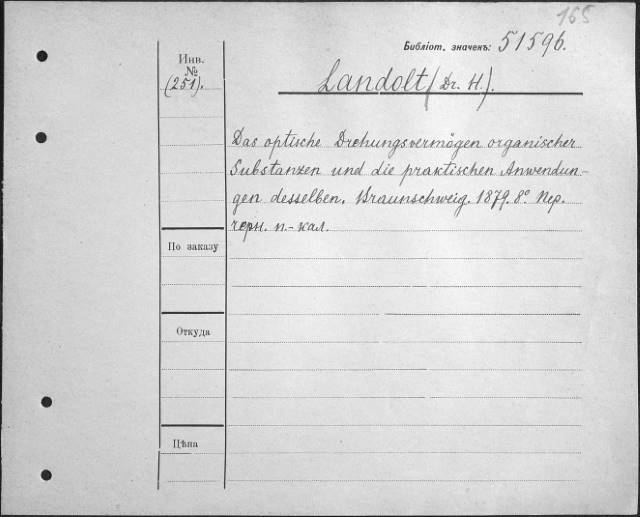 165
Библіот. значекъ: 51596.
Инв.
№
(251).
Landolt (Dr. H.).
Das optische Drehungsvermögen organischer
Substanzen und die praktischen Anwendun-
gen desselben. Braunschweig. 1879. 8º Пер.
черн. п.-кал.
По заказу
Откуда
Цѣна